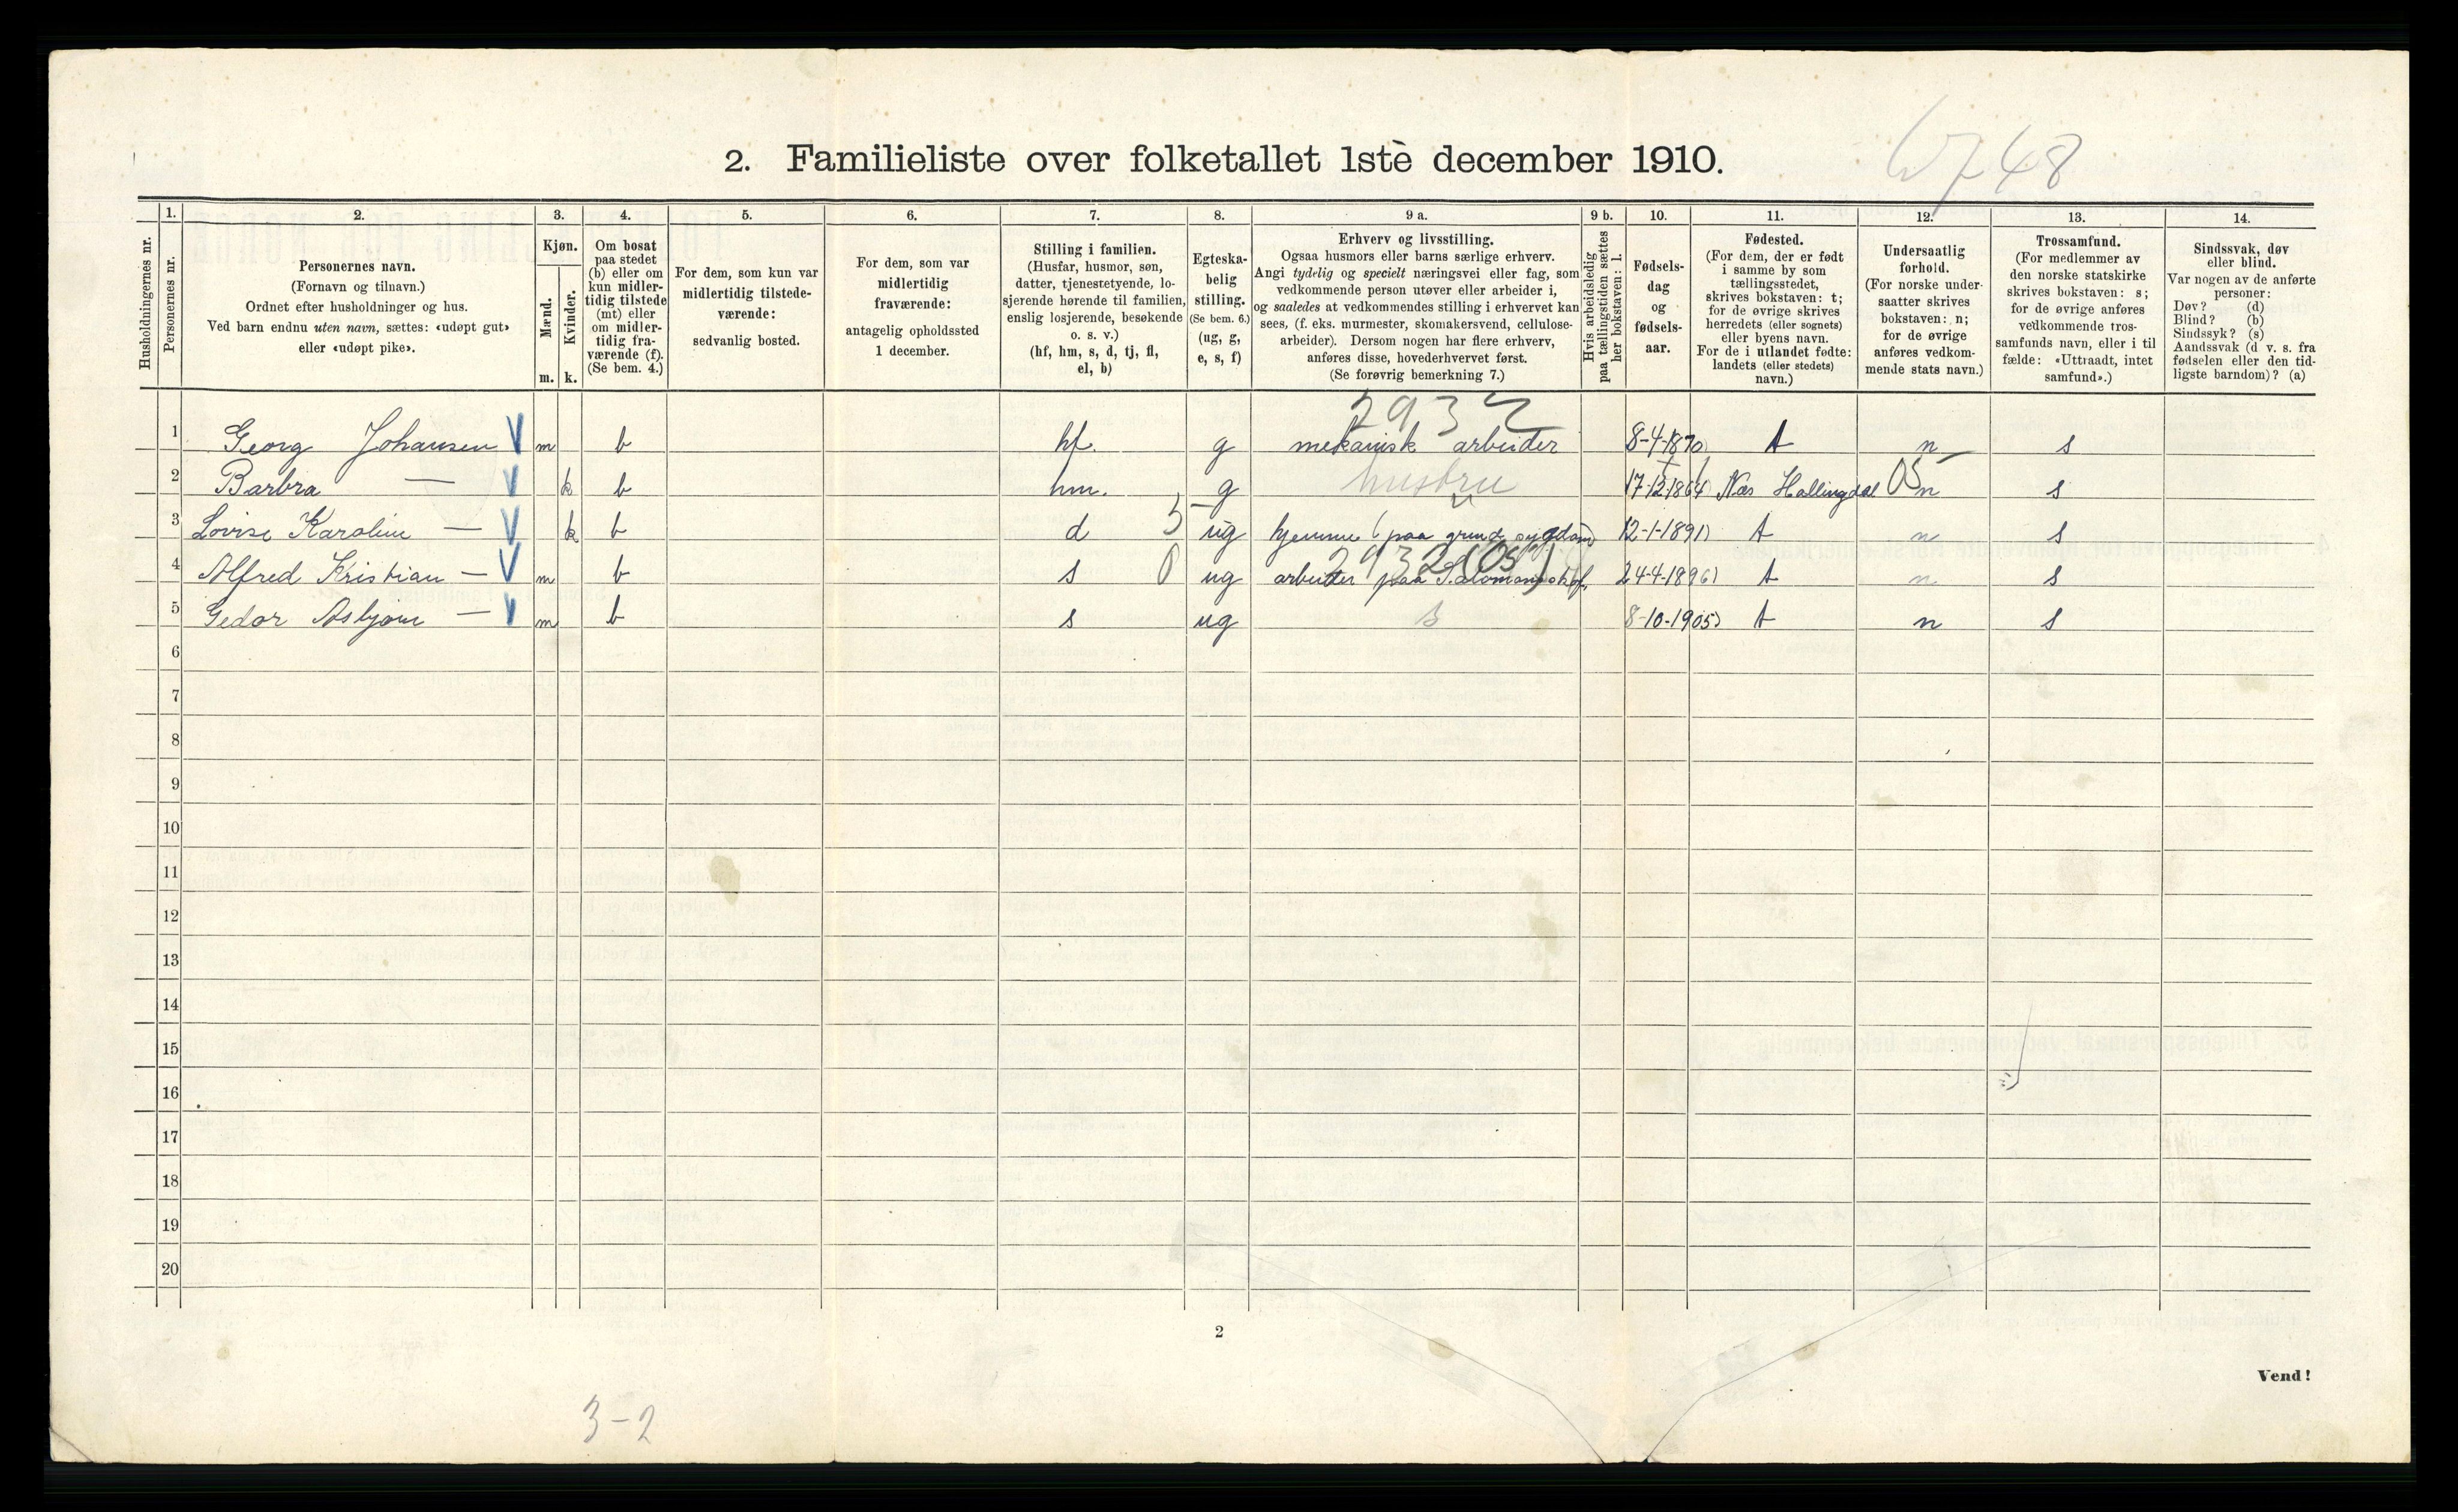 6748
2. Familieliste over folketallet 1stè december 1910.
Husholdningernes nr.
1.
Personernes nr.
2.
Personernes navn.
(Fornavn og tilnavn.)
Ordnet efter husholdninger og hus.
Ved barn endnu uten navn, sættes: «udøpt gut»
eller «udøpt pike».
3.
Kjøn.
Mænd.
m.
Kvinder.
k.
4.
Om bosat
paa stedet
(b) eller om
kun midler-
tidig tilstede
(mt) eller
om midler-
tidig fra-
værende (f).
(Se bem. 4.)
5.
For dem, som kun var
midlertidig tilstede-
værende:
sedvanlig bosted.
6.
For dem, som var
midlertidig
fraværende:
antagelig opholdssted
1 december.
7.
Stilling i familien.
(Husfar, husmor, søn,
datter, tjenestetyende, lo-
sjerende hørende til familien,
enslig losjerende, besøkende
o. s. v.)
(hf, hm, s, d, tj, fl,
el, b)
8.
Egteska-
belig
stilling.
(Se bem. 6.)
(ug, g,
e, s, f)
9 a.
Erhverv og livsstilling.
Ogsaa husmors eller barns særlige erhverv.
Angi tydelig og specielt næringsvei eller fag, som
vedkommende person utøver eller arbeider i,
og saaledes at vedkommendes stilling i erhvervet kan
sees, (f. eks. murmester, skomakersvend, cellulose-
arbeider). Dersom nogen har flere erhverv,
anføres disse, hovederhvervet først.
(Se forøvrig bemerkning 7.)
9 b.
Hvis arbeidsledig
paa tællingstiden sættes
her bokstaven: l.
10.
Fødsels-
dag
og
fødsels-
aar.
11.
Fødested.
(For dem, der er født
i samme by som
tællingsstedet,
skrives bokstaven: t;
for de øvrige skrives
herredets (eller sognets)
eller byens navn.
For de i utlandet fødte:
landets (eller stedets)
navn.)
12.
Undersaatlig
forhold.
(For norske under-
saatter skrives
bokstaven: n;
for de øvrige
anføres vedkom-
mende stats navn.)
13.
Trossamfund.
(For medlemmer av
den norske statskirke
skrives bokstaven: s;
for de øvrige anføres
vedkommende tros-
samfunds navn, eller i til
fælde: «Uttraadt, intet
samfund».)
14.
Sindssvak, døv
eller blind.
Var nogen av de anførte
personer:
Døv? (d)
Blind? (b)
Sindssyk? (s)
Aandssvak (d v. s. fra
fødselen eller den tid-
ligste barndom)? (a)
2932
1 Georg Johansen V m b hf. g mekanisk arbeider 8-4-1870 t n s
2 Barbra — V k b hm. g hustru 17-12-1864 Næs Hallingdal 05 n s
3 Lovise Karoline — V k b d 5 ug hjemme (paa grund sygdom) 12-1-1891 t n s
2932 (05)
4 Alfred Kristian — V m b s 0 ug arbeider paa 24-4-1896 t n s
5 Gedor Asbjørn — V m b s ug s 8-10-1905 t n s
6
7
8
9
10
11
12
13
14
15
16
17
18
19
20
2
Vend!
3-2